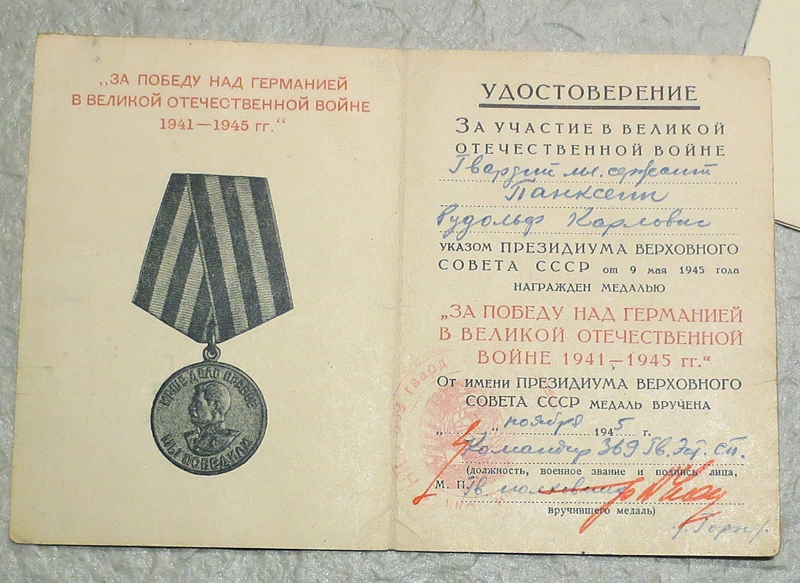 „ЗА ПОБЕДУ НАД ГЕРМАНИЕЙ
В ВЕЛИКОЙ ОТЕЧЕСТВЕННОЙ ВОЙНЕ
1941—1945 гг.“
НАШЕ ДЕЛО ПРАВОЕ
МЫ ПОБЕДИЛИ
УДОСТОВЕРЕНИЕ
ЗА УЧАСТИЕ В ВЕЛИКОЙ
ОТЕЧЕСТВЕННОЙ ВОЙНЕ
Гвардии мл. сержант
Панксепп
Рудольф Карлович
УКАЗОМ ПРЕЗИДИУМА ВЕРХОВНОГО
СОВЕТА СССР от 9 мая 1945 года
НАГРАЖДЕН МЕДАЛЬЮ
„ЗА ПОБЕДУ НАД ГЕРМАНИЕЙ
В ВЕЛИКОЙ ОТЕЧЕСТВЕННОЙ
ВОЙНЕ 1941—1945 гг.“
От имени ПРЕЗИДИУМА ВЕРХОВНОГО
СОВЕТА СССР МЕДАЛЬ ВРУЧЕНА
„ “ ноября 1945 г.
Командир 369 Гв. сп.
(должность, военное звание и подпись лица,
М. П. Гв.
вручившего медаль)